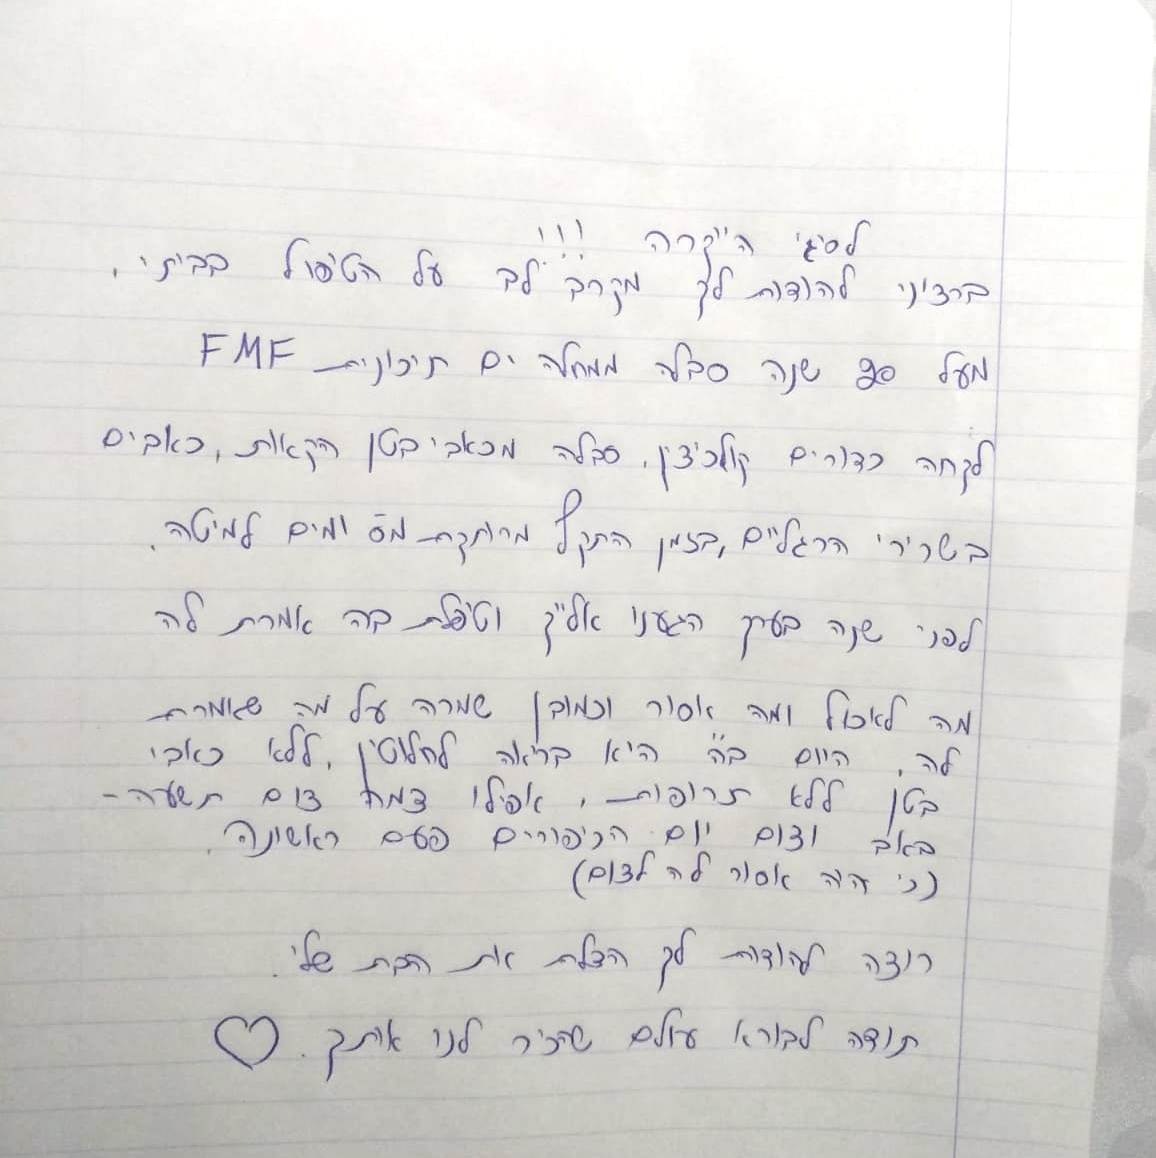 לסיגי היקרה !!!
ברצוני להודות לך מקרב לב על הטיפול בביתי,
מעל 20 שנה סבלה ממחלה ים תיכונית FMF
לקחה כדורים קולכיצין, סבלה מכאבי בטן הקאות, כאבים
בשרירי הרגליים, בזמן התקף מרותקת מס ימים למיטה.
לפני שנה בערך הגענו אלייך וטיפלת בה אמרת לה
מה לאכול ומה אסור וכמובן שמרה על מה שאמרת
לה, היום ב"ה היא בריאה לחלוטין, ללא כאבי
בטן ללא תרופות, אפילו צמה צום תשעה-
באב וצום יום הכיפורים פעם ראשונה.
(כי היה אסור לה לצום)
רוצה להודות לך הצלת את הבת שלי.
תודה לבורא עולם שהכיר לנו אותך. ♡